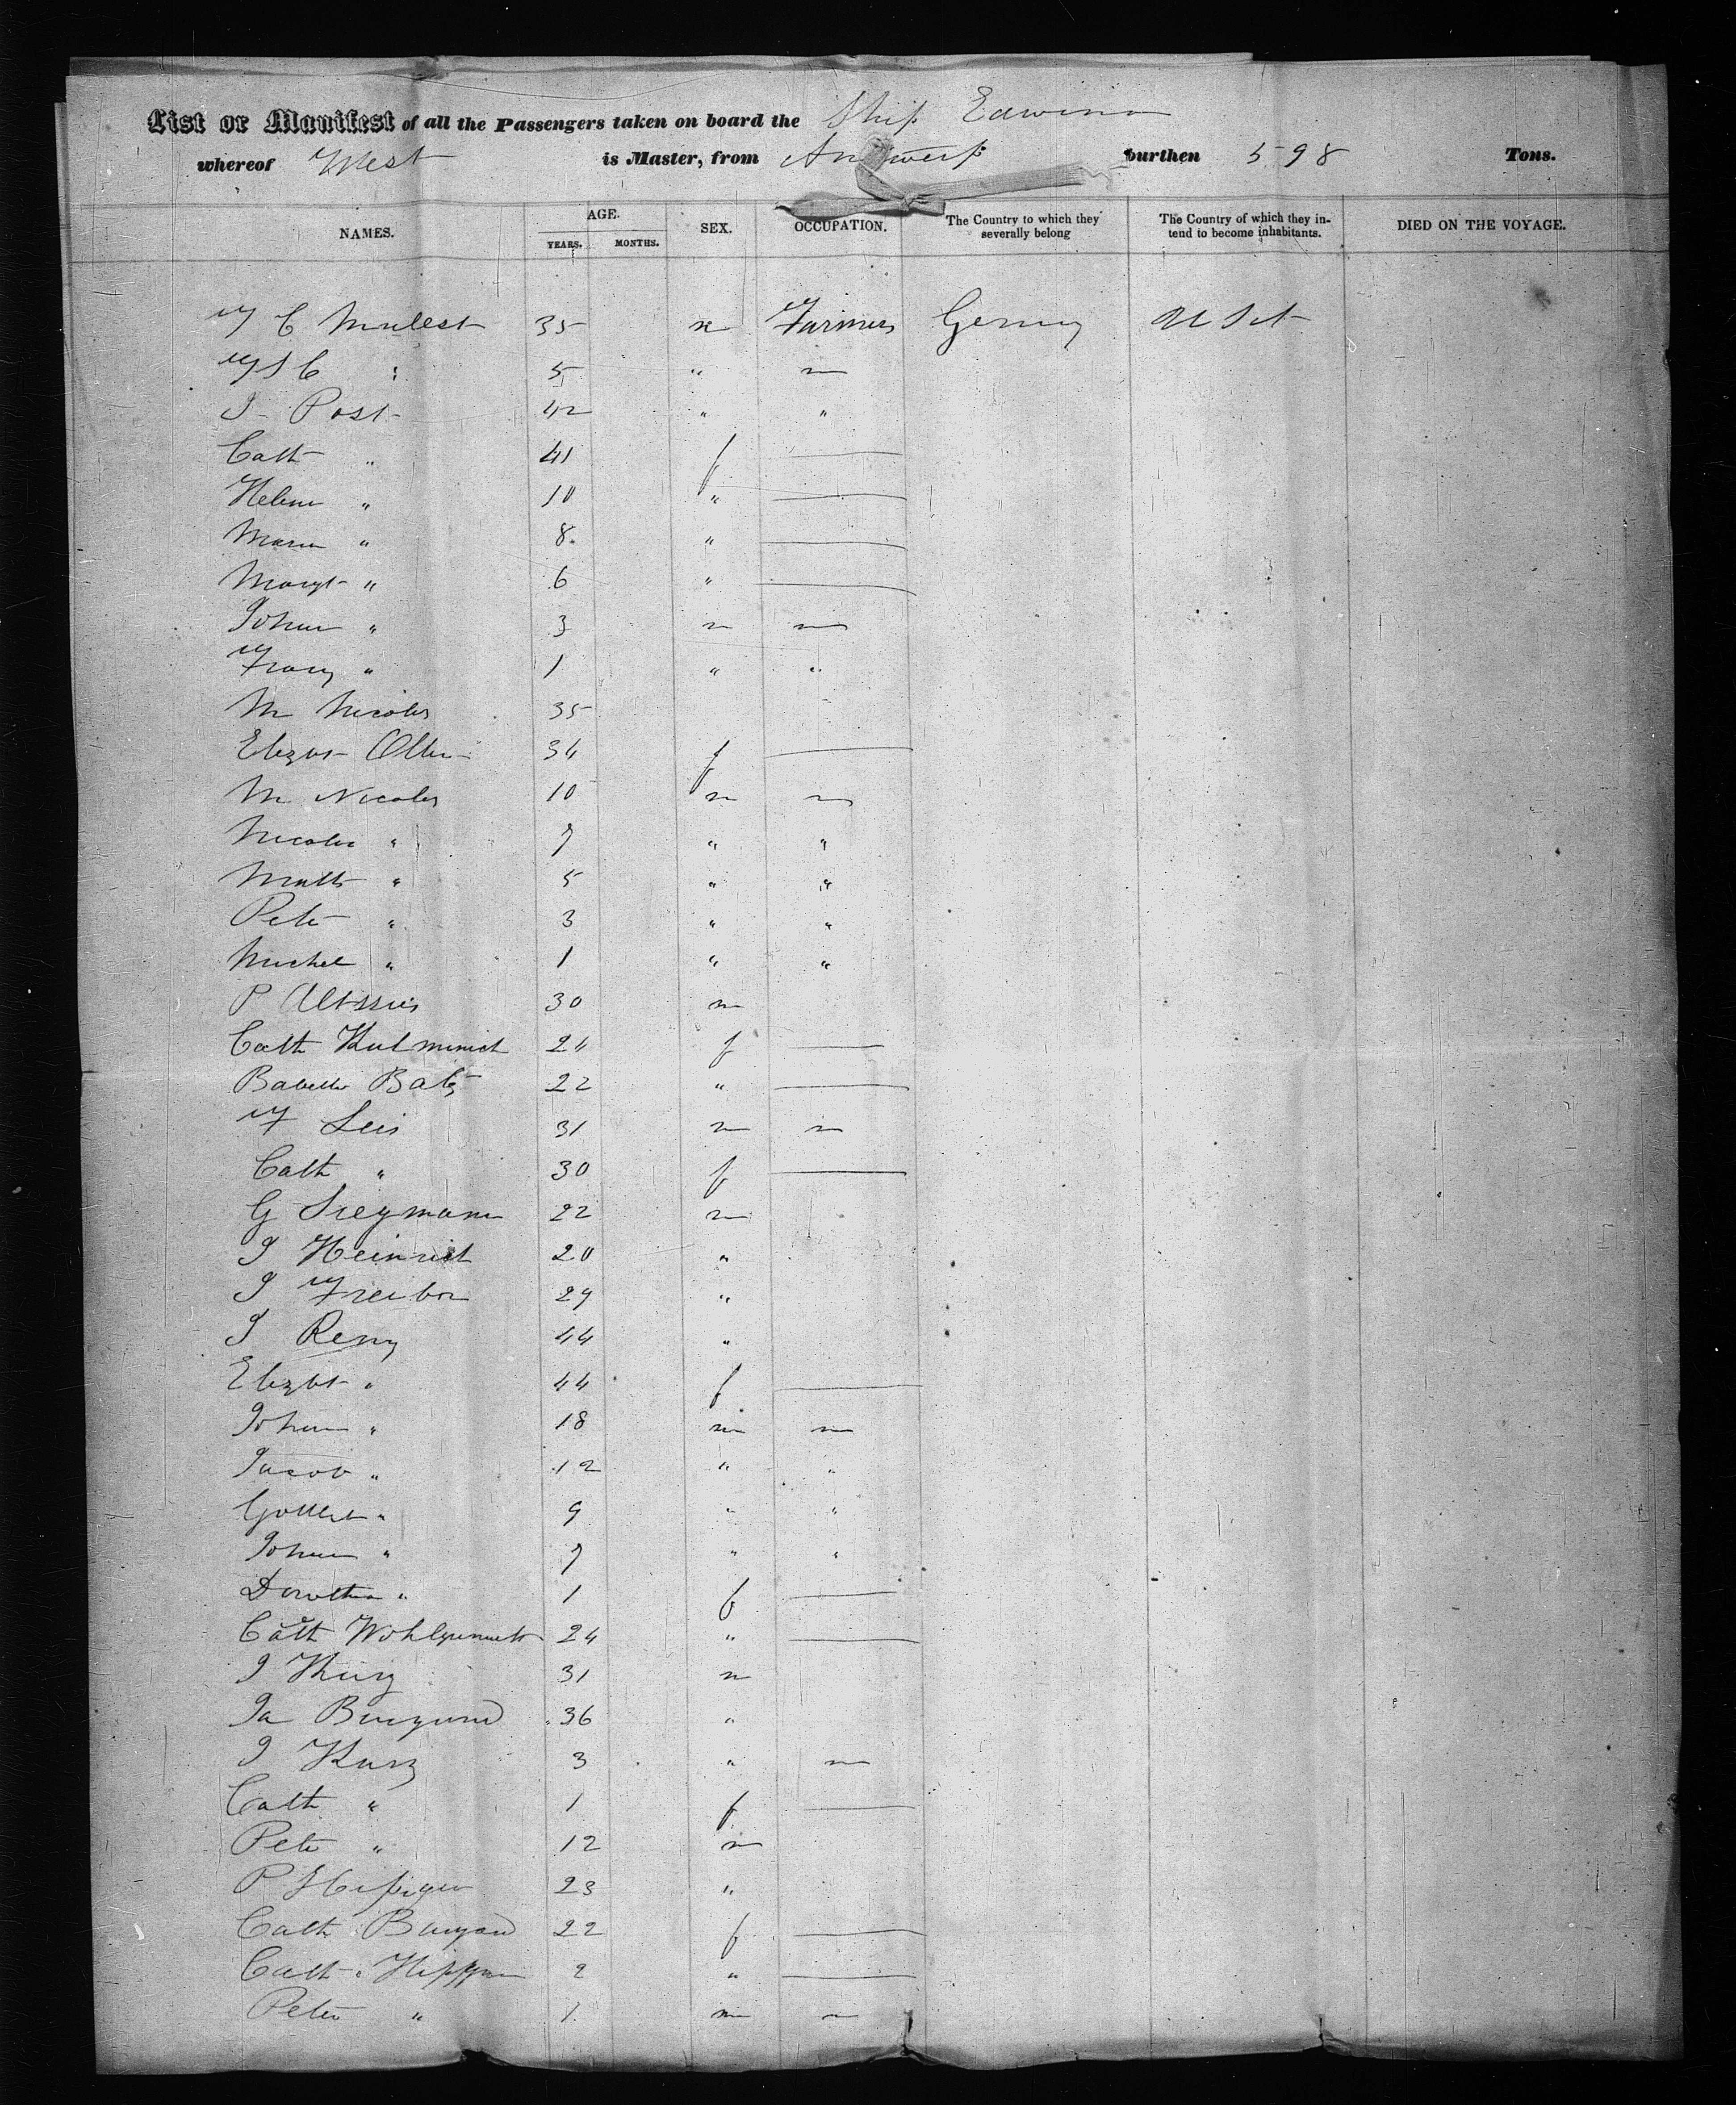 List or Manifest of all the Passengers taken on board the Ship Edwina
whereof West is Master, from Antwerp burthen 598 Tons.
NAMES. AGE. YEARS. MONTHS. SEX. OCCUPATION. The Country to which they severally belong The Country of which they intend to become inhabitants. DIED ON THE VOYAGE.
F C 35 m Farmers Germy U St
F S C " 5 " —
J Post 42 " "
Cath " 41 f —
Helena " 10 " —
Maria " 8 " —
Margt " 6 " —
Johan " 3 m —
Franz " 1 " "
M Nicolas 35
Elizbt 34 f —
M Nicolas 10 m —
Nicolas " 7 " "
Math " 5 " "
Peter " 3 " "
Michel " 1 " "
P 30 m
Cath 24 f —
Babette Batz 22 " —
F Leis 31 m —
Cath " 30 f —
G Siegmann 22 m
J Heinrich 20 "
J 29 "
J Remy 44 "
Elizbt " 44 f —
Johan " 18 m —
Jacob " 12 " "
Gottlieb " 9 " "
Johan " 7 " "
Dorothea " 1 f —
Cath Wohlgemuth 24 " —
J Kurz 31 m
Ja Burgund 36 "
J Kurz 3 " —
Cath " 1 f —
Peter " 12 m
P 23 "
Cath 22 f —
Cath 2 " —
Peter " 1 m —